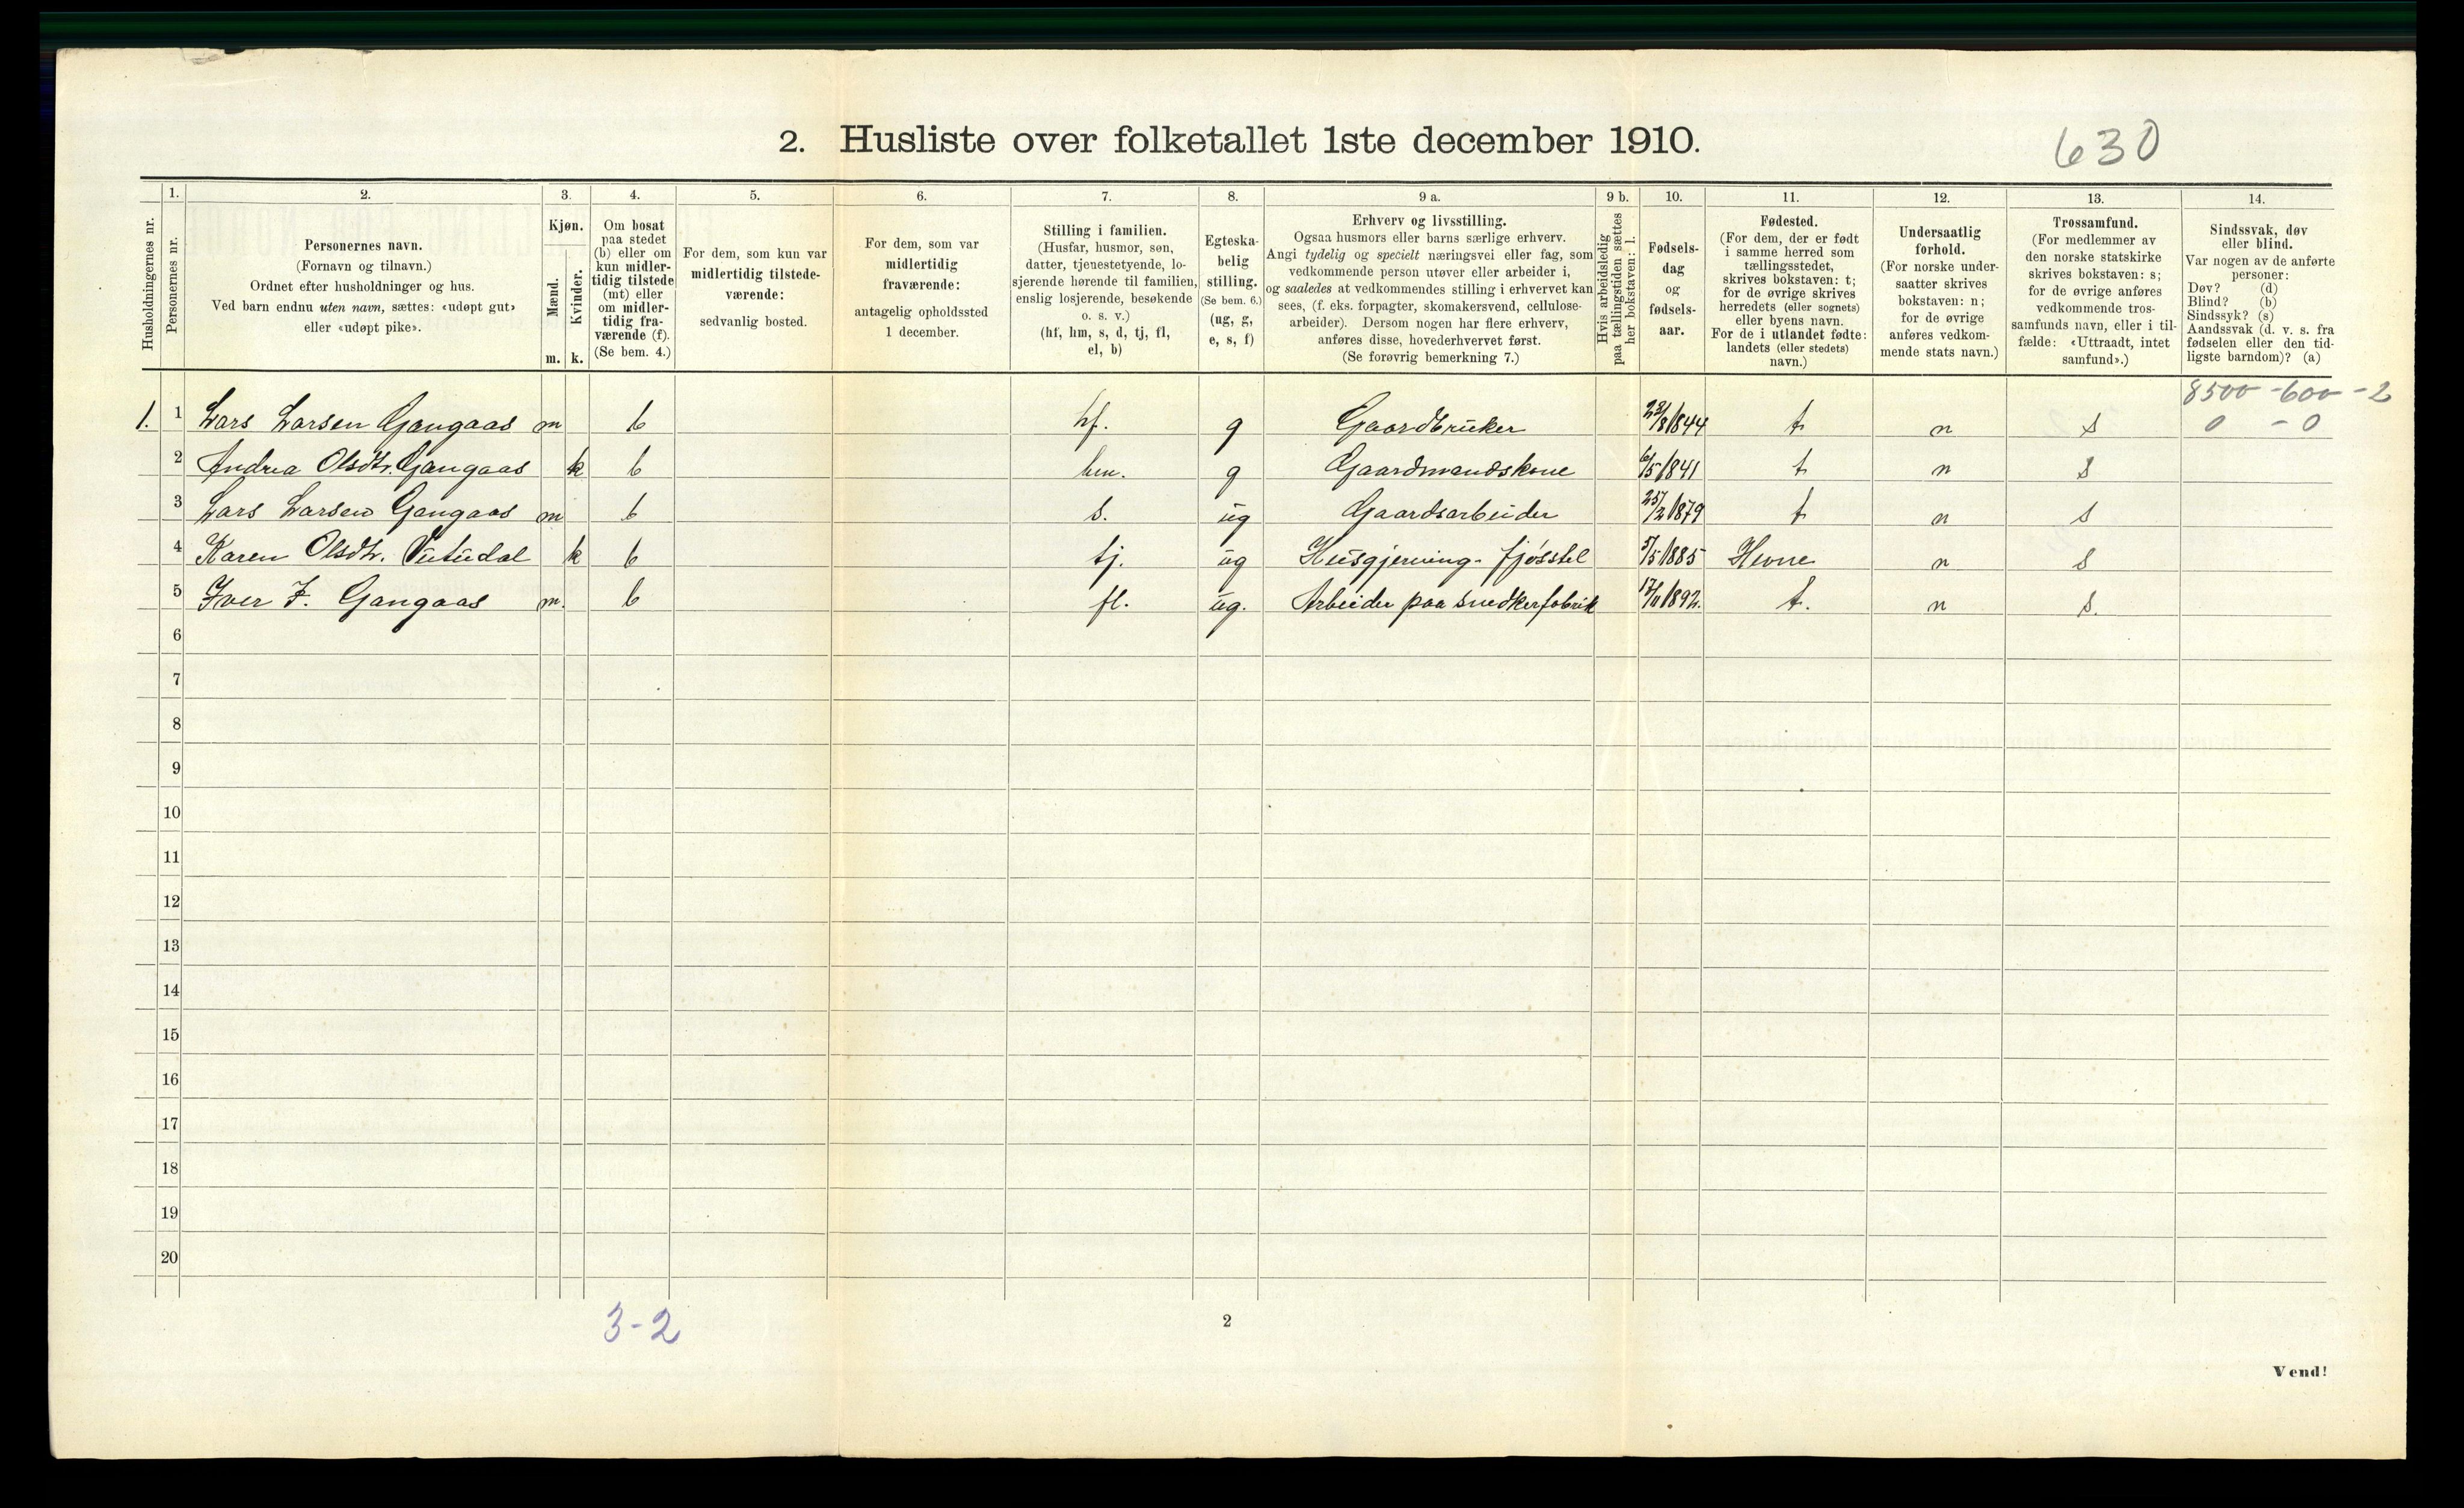 2. Husliste over folketallet 1ste december 1910.
630
Husholdningernes nr.
1.
Personernes nr.
2.
Personernes navn.
(Fornavn og tilnavn.)
Ordnet efter husholdninger og hus.
Ved barn endnu uten navn, sættes: «udøpt gut»
eller «udøpt pike».
3.
Kjøn.
Mænd.
Kvinder.
m. k.
4.
Om bosat
paa stedet
(b) eller om
kun midler-
tidig tilstede
(mt) eller
om midler-
tidig fra-
værende (f).
(Se bem. 4.)
5.
For dem, som kun var
midlertidig tilstede-
værende:
sedvanlig bosted.
6.
For dem, som var
midlertidig
fraværende:
antagelig opholdssted
1 december.
7.
Stilling i familien.
(Husfar, husmor, søn,
datter, tjenestetyende, lo-
sjerende hørende til familien,
enslig losjerende, besøkende
o. s. v.)
(hf, hm, s, d, tj, fl,
el, b)
8.
Egteska-
belig
stilling.
(Se bem. 6.)
(ug, g,
e, s, f)
9 a.
Erhverv og livsstilling.
Ogsaa husmors eller barns særlige erhverv.
Angi tydelig og specielt næringsvei eller fag, som
vedkommende person utøver eller arbeider i,
og saaledes at vedkommendes stilling i erhvervet kan
sees, (f. eks. forpagter, skomakersvend, cellulose-
arbeider). Dersom nogen har flere erhverv,
anføres disse, hovederhvervet først.
(Se forøvrig bemerkning 7.)
9 b.
Hvis arbeidsledig
paa tællingstiden sættes
her bokstaven: l.
10.
Fødsels-
dag
og
fødsels-
aar.
11.
Fødested.
(For dem, der er født
i samme herred som
tællingsstedet,
skrives bokstaven: t;
for de øvrige skrives
herredets (eller sognets)
eller byens navn.
For de i utlandet fødte:
landets (eller stedets)
navn.)
12.
Undersaatlig
forhold.
(For norske under-
saatter skrives
bokstaven: n;
for de øvrige
anføres vedkom-
mende stats navn.)
13.
Trossamfund.
(For medlemmer av
den norske statskirke
skrives bokstaven: s;
for de øvrige anføres
vedkommende tros-
samfunds navn, eller i til-
fælde: «Uttraadt, intet
samfund».)
14.
Sindssvak, døv
eller blind.
Var nogen av de anførte
personer:
Døv? (d)
Blind? (b)
Sindssyk? (s)
Aandssvak (d. v. s. fra
fødselen eller den tid-
ligste barndom)? (a)
8500 - 600 - 2
0 - 0
1. 1 Lars Larsen Gangaas m b hf. g Gaardbruker /8 1844 t n s
2 Andrea Olsdtr. Gangaas k b hm. g Gaardmandskone 6/5 1841 t n s
3 Lars Larsen Gangaas m b s. ug Gaardsarbeider 25/2 1879 t n s
4 Karen Olsdtr. k b tj. ug Husgjerning - fjøsstel 5/5 1885 Hevne n s
5 Iver I. Gangaas m. b fl. ug. Arbeider paa snedkerfabrik 17/11 1892. t. n s.
6
7
8
9
10
11
12
13
14
15
16
17
18
19
20
3-2
2
Vend!